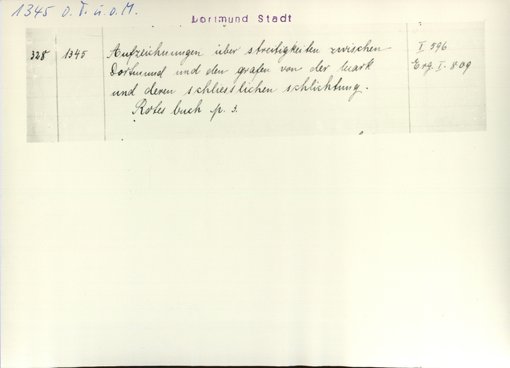 1345 o. T. u. o. M.
Dortmund Stadt
328 1345 Aufzeichnungen über streitigkeiten zwischen I 596
Dortmund und den grafen von der Mark Erg. I. 809
und deren schliesslichen schlichtung.
Rotes buch p. 3.